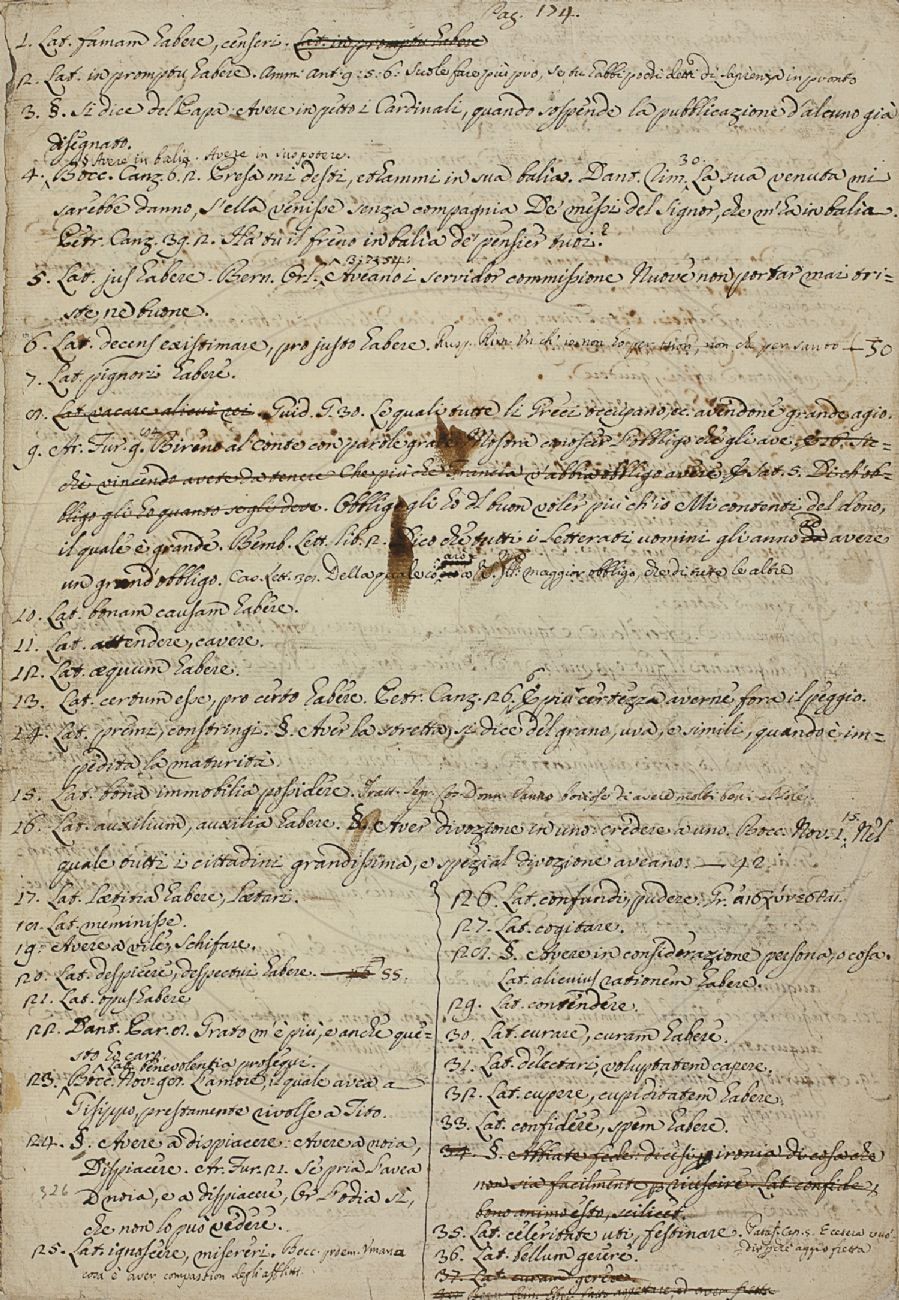 Pag. 174.
1. Lat. famam habere, censeri. Lat. in promptu habere
2. Lat. in promptu habere. Amm. Ant. 9: 5. 6. Suole fare più pro, se tu habbi pochi detti di sapienza in pronto
3. §. Si dice del Papa: Avere in petto i Cardinali, quando sospende la pubblicazione d'alcuno già
disegnato.
§ Avere in balia. Avere in suo potere.
4. Bocc. Canz. 6. 2. Presa mi desti, ed hammi in sua balia. Dant. Rim. 30. La sua venuta mi
sarebbe danno, S'ella venisse senza compagnia De' messi del Signor, che m'ha in balia.
Petr. Canz. 39. 2. Ha' tu il freno in balia de' pensier tuoi?
5. Lat. jus habere. Bern. Orl. Aveano i servidor commissione Nuove non portar mai tri=
ste, ne buone.
6. Lat. decens existimare, pro justo habere. — 50
7. Lat. pignori habere.
8. Lat. vacare alicui rei. Guid. G. 30. Le quali tutte li Greci occupano, ec. avendone grande agio.
9. Ar. Fur. 9. Bireno al Conte con parole grate Mostra conoscer l'obbligo che gli ave.
chè vincendo avete da tenere Che più che Francia v'abbia obbligo avere Sat. 5. Di ch'ob-
bligo gli ho quanto so gli deve. Obbligo gli ho del buon voler più ch'io Mi contenti del dono,
il quale è grande. Bemb. Lett. lib. 2. Dico che tutti i Letterati uomini gli anno ad avere
un grand'obbligo. Car. Lett. 301. Della quale maggior obbligo, che di tutte le altre
10. Lat. bonam causam habere.
11. Lat. attendere, cavere.
12. Lat. æquum habere.
13. Lat. certum esse, pro certo habere. Petr. Canz. 26. 6 E più certezza averne fora il peggio.
14. Lat. premi, constringi. §. Aver la stretta, si dice del grano, uva, e simili, quando è im=
pedita la maturità.
15. Lat. bona immobilia possidere.
16. Lat. auxilium, auxilia habere. §. Aver divozione in uno: credere a uno. Bocc. Nov. 1. 15. Nel
quale tutti i cittadini grandissima, e spezial divozione aveano: — 42
17. Lat. Lætitia habere, Lætari.
18. Lat. meminisse.
19. Avere a vile, Schifare.
20. Lat. despicere, despectui habere. — 55.
21. Lat. opus habere
22. Dant. Par. 8. Grato m'è più, e anche que=
sto ho caro.
Lat. benevolentia prosequi.
23. Bocc. Nov. 98. L'amore, il quale avea a
Gisippo, prestamente rivolse a Tito.
24. §. Avere a dispiacere: Avere a noia,
Dispiacere. Ar. Fur. 21. Se pria l'avea
326 D noia, e a dispiacere, Or l'odia sì,
che non lo può vedere.
25. Lat. ignoscere, misereri. Bocc. proem. Umana
cosa è aver compassion degli afflitti.
26. Lat. confundi, pudere. Gr.
27. Lat. cogitare.
28. §. Avere in considerazione persona, o cosa.
Lat. alicuius rationem habere.
29. Lat. contendere.
30. Lat. curare, curam habere.
31. Lat. delectari, voluptatem capere.
32. Lat. cupere, cupiditatem habere.
33. Lat. confidere, spem habere.
34. §. Abbiate fede: dicesi per ironia di cosa che
non sia facilmente per riuscire. Lat. confide,
bono animo esto, scilicet.
35. Lat. celeritate uti, festinare.
36. Lat. bellum gerere.
37. Lat. curam gerere.